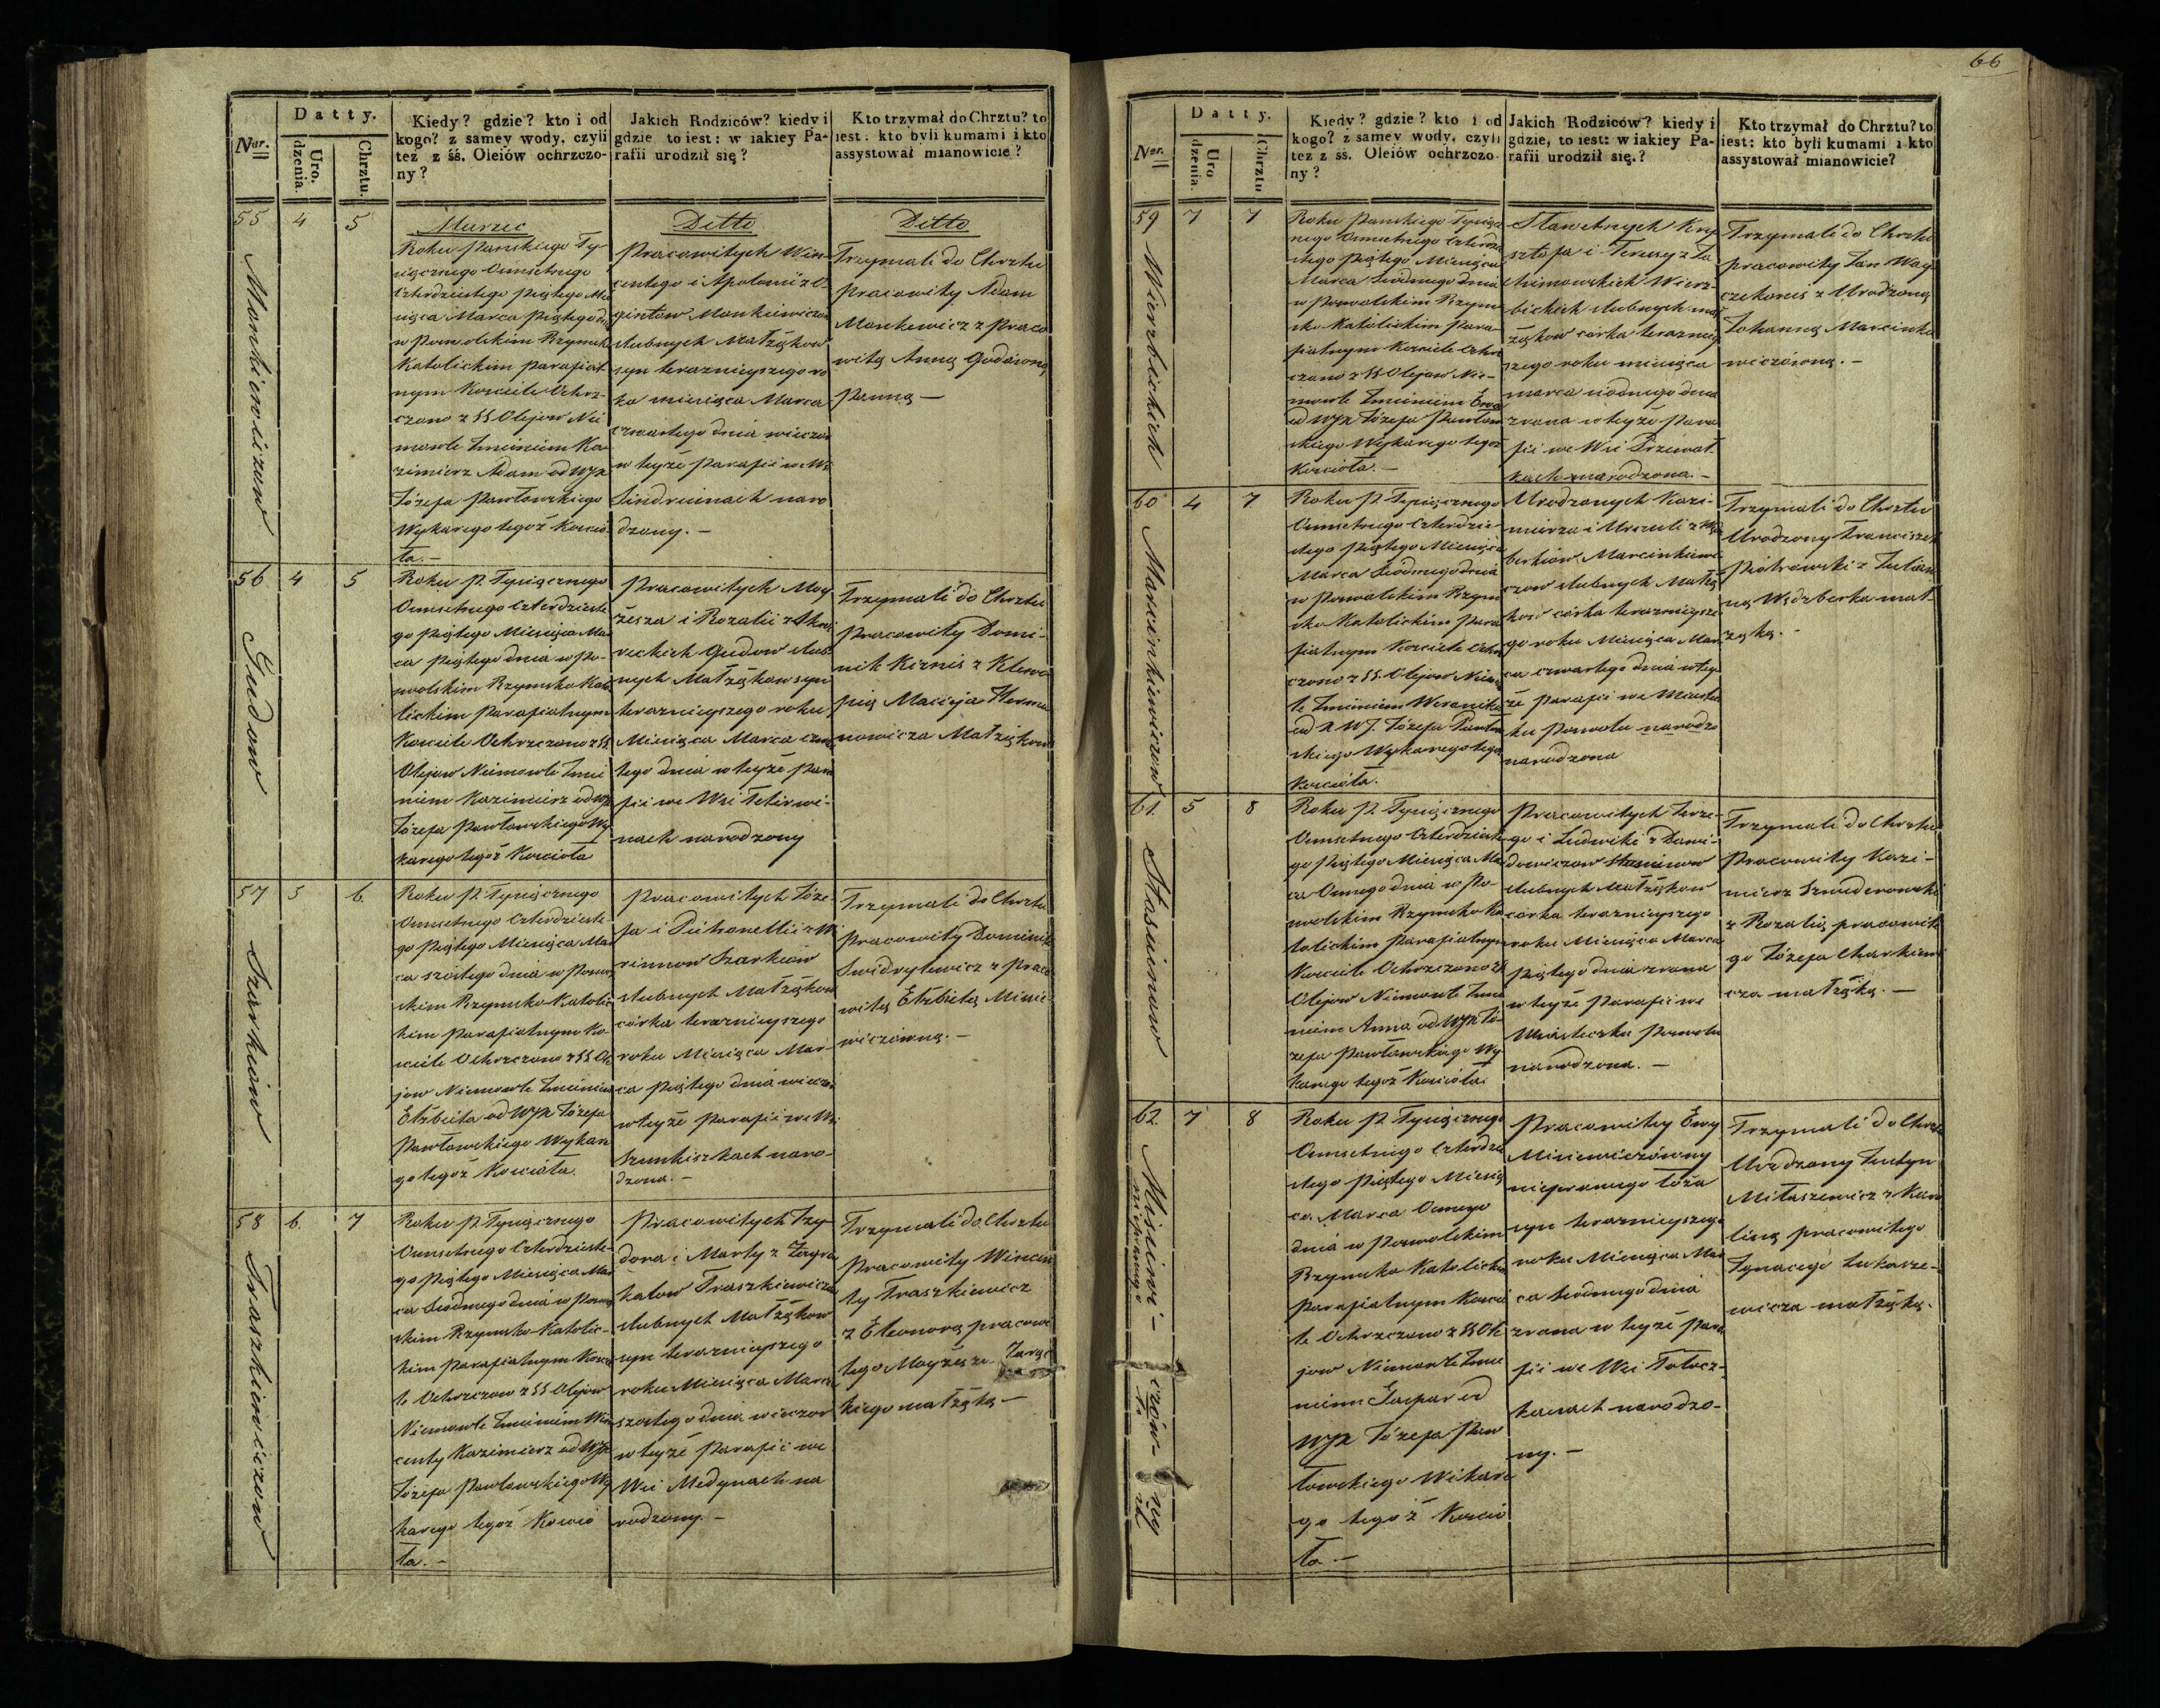 66
Datty.
Nar.
Uro.
dzenia.
Chrztu.
Kiedy? gdzie? kto i od
kogo? z samey wody, czyli
tez z śś. Oleiów ochrzczo-
ny?
Jakich Rodziców? kiedy i
gdzie to iest: w iakiey Pa-
rafii urodził się?
Kto trzymał do Chrztu? to
iest: kto byli kumami i kto
assystował mianowicie?
55
4
5
Monkiewiczow
Marzec
Roku Panskiego Ty-
siącznego Osmsetnego
Czterdziestego piątego Mie
siąca Marca piątego d
w Powolskim Rzymsk
Katolickim parafial
nym Kosciele Ochrz-
czono z SS Olejow Nie
mowle Imieniem Ka
zimierz Adam od WJX
Józefa Pawłowskiego
Wykarego tegoż Koscio
ła.-
Ditto
Pracowitych Win-
centego i Apolonii z O-
gintow Monkiewiczow
slubnych Małżąkow
syn teraznieyszego ro
ku miesiąca Marca
czwartego dnia wieczor
w teyże Parafii we W
Sindrunach naro
dzony.-
Ditto
Trzymali do Chrztu
pracowity Adam
Monkewicz z praco
witą Anną
Panną -
56
4
5
Gudow
Roku P. Tysiącznego
Osmsetnego Czterdzieste
go piątego Miesiąca Ma
ca piątego dnia w Po-
wolskim Rzymsko Kato
lickim Parafialnym
Kosciele Ochrzczono z SS
Olejow Niemowle Imie
niem Kazimierz od WJX
Józefa Pawłowskiego Wy
karego tegoż Kościoła
Pracowitych Moy
żesza i Rozalii z
reckich Gudow slub
nych Małżąkow syn
teraznieyszego roku
Miesiąca Marca czwar
tego dnia w teyże para
fii we Wsi Tetirwi-
nach narodzony
Trzymali do Chrztu
pracowity Domi-
nik Kirnis z Kleopa
pią Macieja Herma
nowicza Małżąkow
57
5
6.
Szarkiow
Roku P. Tysiącznego
Osmsetnego Czterdzieste-
go piątego Miesiąca Mar
ca szostego dnia w Powo
skim Rzymsko Katolic
kim parafialnym Ko-
sciele Ochrzczono z SS Ole
jow Niemowle Imieniem
Elżbieta od WJX Józefa
Pawłowskiego Wykare
go tegoż Kościoła
Pracowitych Józe-
fa i Petronellii z W
rinnow Szarkiów
slubnych Małżąkow
córka teraznieyszego
roku Miesiąca Mar-
ca piątego dnia wieczor
w teyże Parafii we Ws
Szunkiszkach naro-
dzona.-
Trzymali do Chrztu
pracowity Dominik
Swidrylewicz z praco
witą Elżbietą Misie
wiczówną.-
58
6.
7
Traszkiewiczow
Roku P. Tysiącznego
Osmsetnego Czterdzieste-
go piątego Miesiąca Mar
ca Siodmego dnia w Powo
skim Rzymsko Katolic-
kim parafialnym Kosci
le Ochrzczono z SS Olejow
Niemowle Imieniem Win
centy Kazimierz od WJX
Józefa Pawłowskiego Wy
karego tegoż Koscio
ła.-
Pracowitych Izy
dora i Marty z Zagra
kałow Traszkiewiczow
slubnych Małżąkow
syn teraznieyszego
roku Miesiąca Marca
szostego dnia wieczor
w teyże Parafii we
Wsi Medynach na
rodzony.-
Trzymali do Chrztu
pracowity Wincen
ty Traszkiewicz
z Eleonorą pracowi
tego Moyżesza
kiego małżąką -
Datty.
Nar.
Uro
dzenia.
Chrztu
Kiedy? gdzie? kto i od
kogo? z samey wody, czyli
tez z śś. Oleiów ochrzczo-
ny?
Jakich Rodziców? kiedy i
gdzie, to iest: w iakiey Pa-
rafii urodził się.?
Kto trzymał do Chrztu? to
iest: kto byli kumami i kto
assystował mianowicie?
59
7
7
Wierzbickich
Roku Panskiego Tysiąc
nego Osmsetnego Czterdzie
stego piątego Miesiąca
Marca Siodmego dnia
w Powolskim Rzym
sko Katolickim para-
fialnym Kosciele Ochrz
czono z SS Olejow Nie-
mowle Imieniem Ewa
od WJX Józefa Pawłow
skiego Wykarego tegoż
Kościoła.-
Sławetnych Krzy
sztofa i Teresy z Ja
chimowskich Wierz-
bickich slubnych mał
żąkow córka terazniey
szego roku miesiąca
marca siodmego dnia
zrana w teyże Para
fii we Wsi
kach narodzona.-
Trzymali do Chrztu
pracowity Jan Way
czekonis z Urodzoną
Johanną Marcinkie
wiczówną.-
60
4
7
Marcinkiewiczow
Roku P. Tysiącznego
Osmsetnego Czterdzie-
stego piątego Miesiąca
Marca Siodmego dnia
w Powolskim Rzym
sko Katolickim para
fialnym Kosciele Ochrz
czono z SS. Olejow Niemow
le Imieniem Weronika
od X WJ. Józefa Pawłow
skiego Wykarego tego
Kościoła.
Urodzonych Kazi-
mierza i Urszuli z Wąd
berkiów Marcinkiewi
czow slubnych Małżą
kow córka teraznieysze
go roku Miesiąca Mar
ca czwartego dnia w tey
że Parafii we Miastecz
ku Powolu narodzo
narodzona
Trzymali do Chrztu
Urodzony Franciszek
Piotrowski z Julian
ną Wądzberka mał-
żąką.-
61.
5
8
Stasiunow
Roku P. Tysiącznego
Osmsetnego Czterdzieste
go piątego Miesiąca Mar
ca Osmego dnia w Po-
wolskim Rzymsko Ka
tolickim Parafialnym
Kosciele Ochrzczono z SS
Olejow Niemowle Imie
niem Anna od WJX Jó-
zefa Pawłowskiego Wy
karego tegoż Kościoła.
Pracowitych Jerze-
go i Ludwiki z Dawi-
dowiczow Stasiunow
slubnych Małżąkow
córka teraznieyszego
roku Miesiąca Marca
piątego dnia zrana
w teyże Parafii we
Miasteczku Powolu
narodzona.-
Trzymali do Chrztu
Pracowity Kazi-
mierz Szwiderowski
z Rozalią pracowite
go Józefa Charkiewi
cza małżąką.-
62.
7
8
Misiewi-
czów-
ny
nieprawego
Roku P. Tysiącznego
Osmsetnego Czterdzie
stego piątego Miesią
ca Marca Osmego
dnia w Powolskim
Rzymsko Katolickim
parafialnym Koscie
le Ochrzczono z SS Ole
jow Niemowle Imie
niem Gaspar od
WJX Józefa Paw
łowskiego Wikare
go tegoż Koscio
ła.-
Pracowitey Ewy
Misiewiczówny
nieprawego łoża
syn teraznieyszego
roku Miesiąca Mar
ca siodmego dnia
zrana w teyże para
fii we Wsi Tołocz-
kanach narodzo-
ny.-
Trzymali do Chrztu
Urodzony Justyn
Miłaszewicz z Karo
liną pracowitego
Ignacego Łukasze-
wicza małżąką.